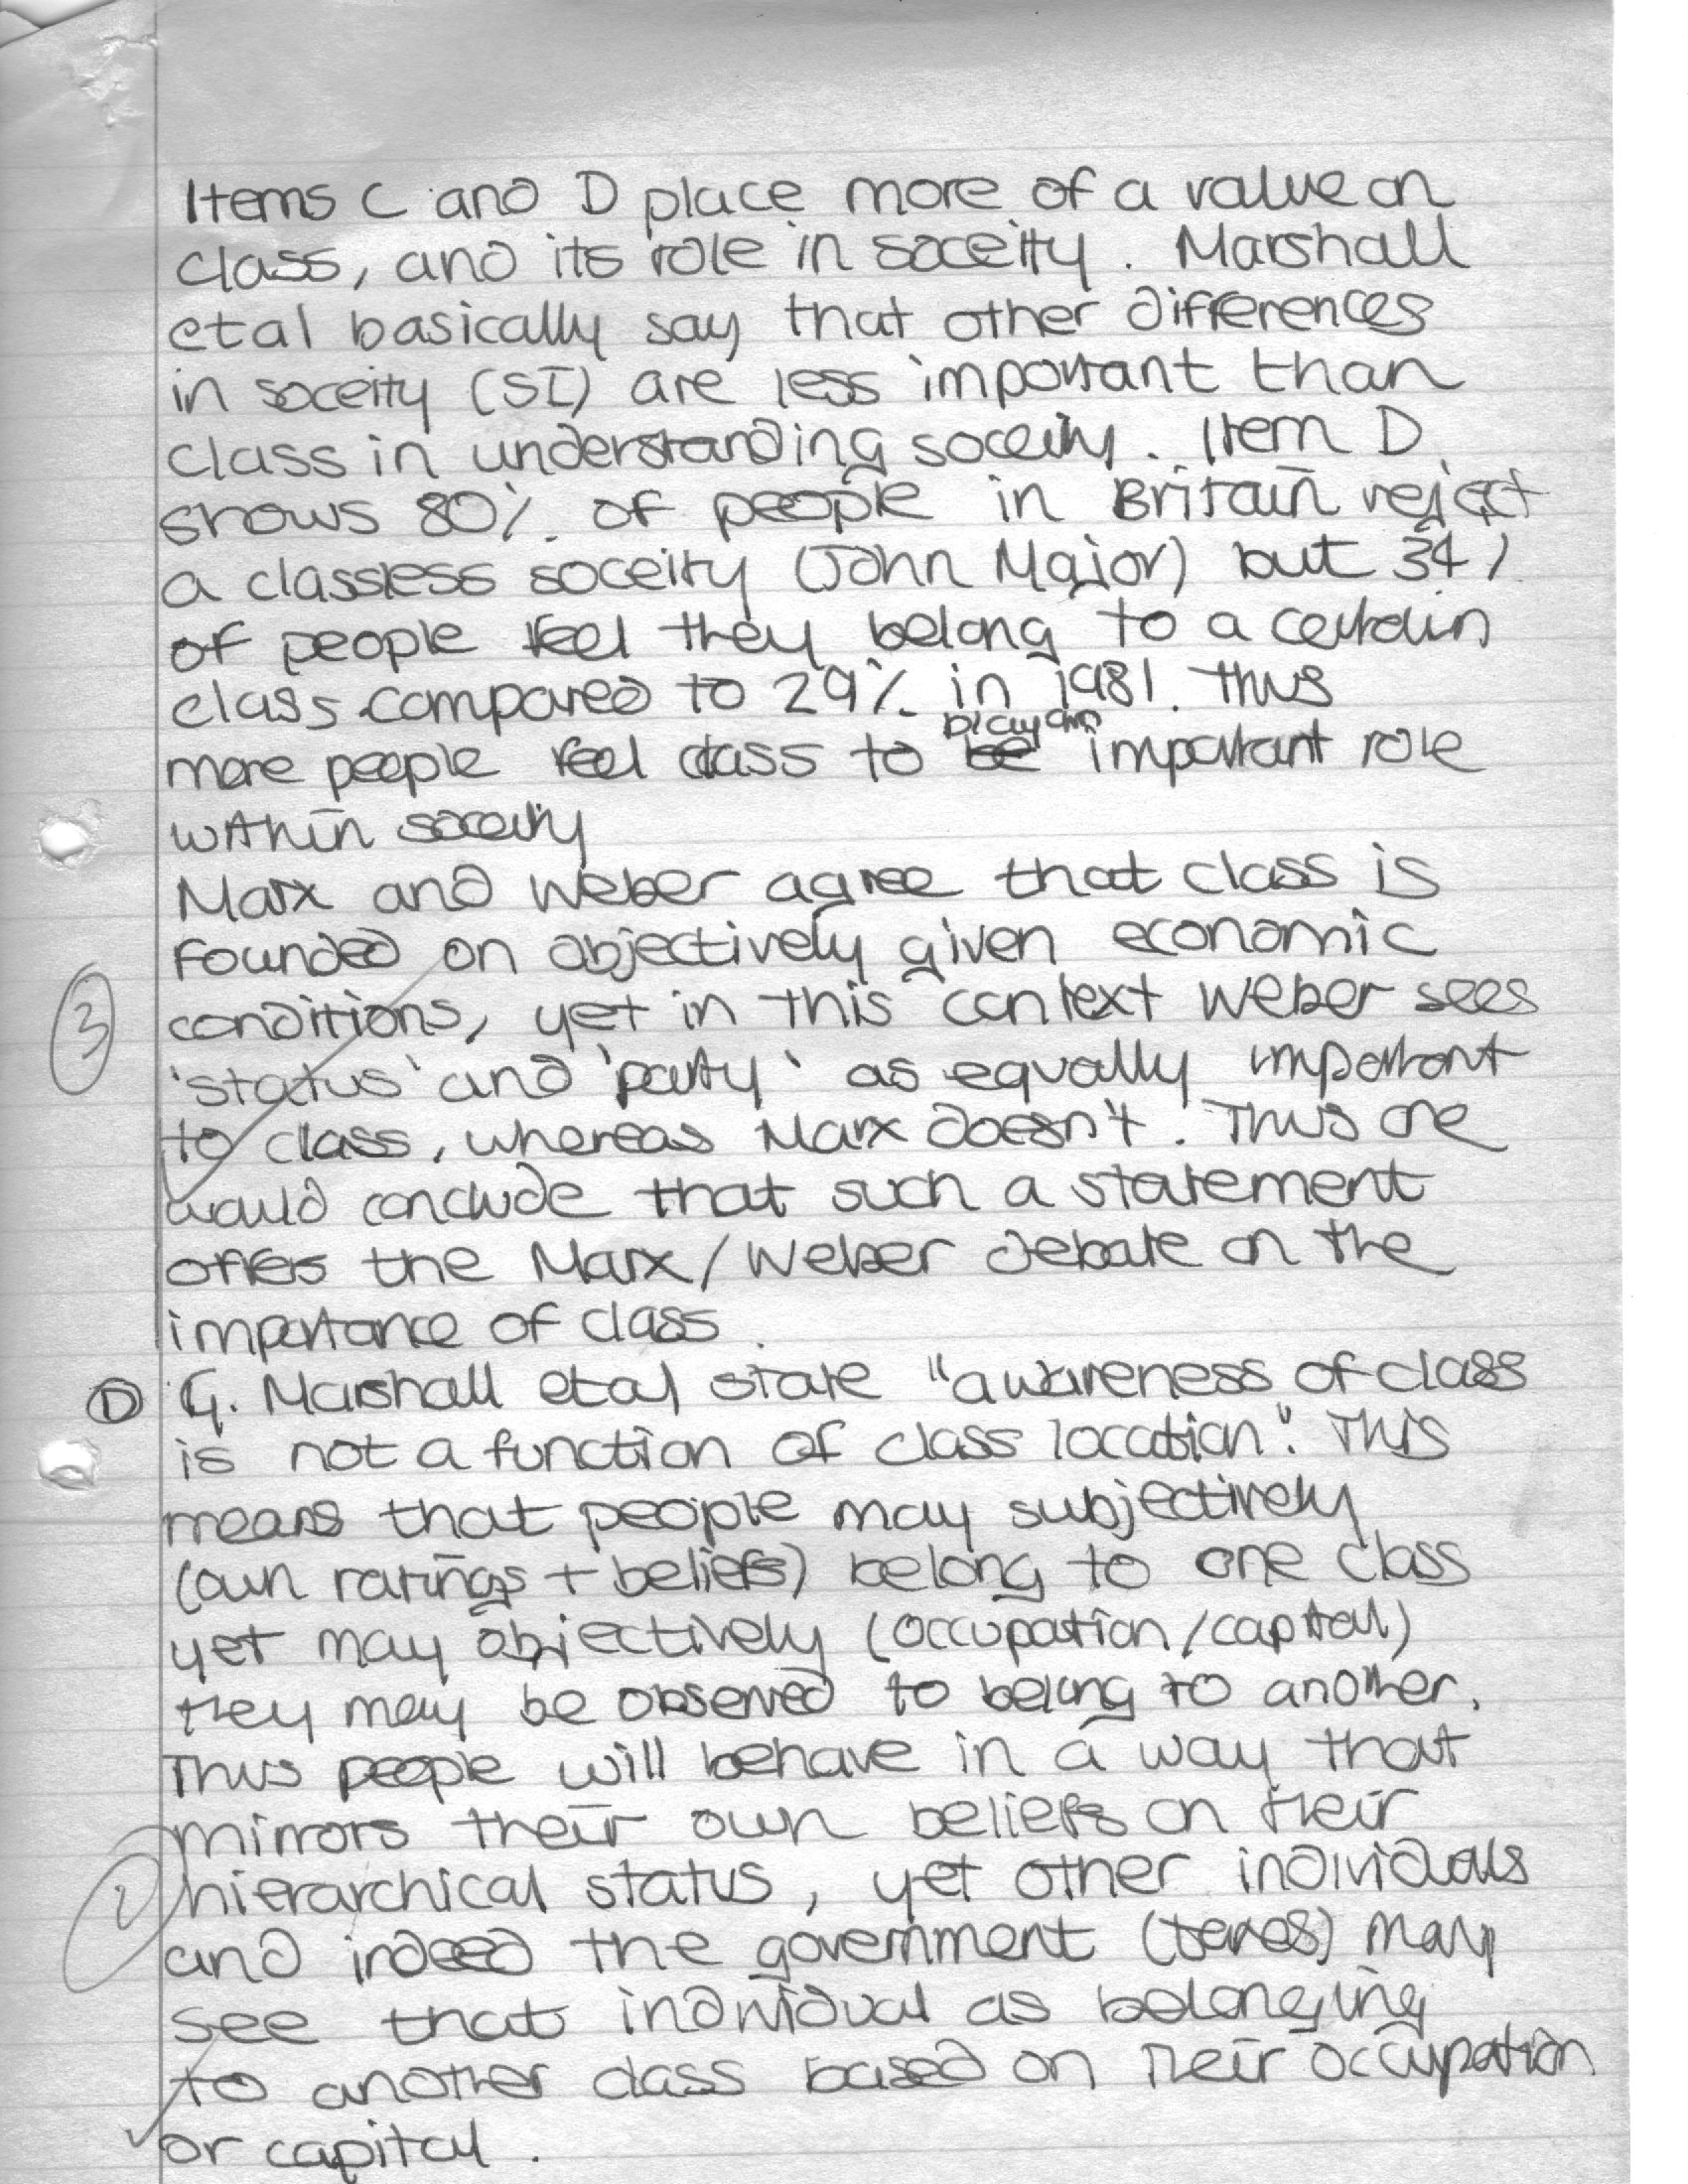 Items C and D place more of a value on
class, and its role in soceity. Marshall
etal basically say that other differences
in soceity (SI) are less important than
class in understanding soceity. Item D
shows 80%. of people in Britain reject
a classless soceity (John Major) but 34%
of people feel they belong to a certain
class compared to 29%. in 1981. Thus
more people feel class to play an important role
within soceity
Marx and Weber agree that class is
founded on objectively given economic
conditions, yet in this context Weber sees
3
'status' and 'party' as equally important
to class, whereas Marx doesn't. Thus one
would conclude that such a statement
offers the Marx/Weber debate on the
importance of class.
D G. Marshall etal state "awareness of class
is not a function of class location". This
means that people may subjectively
(own ratings + beliefs) belong to one class
yet may objectively (occupation/capital)
they may be observed to belong to another.
Thus people will behave in a way that
mirrors their own beliefs on their
hierarchical status, yet other individuals
and indeed the government (taxes) may
see that individual as belonging
to another class based on their occupation
or capital.